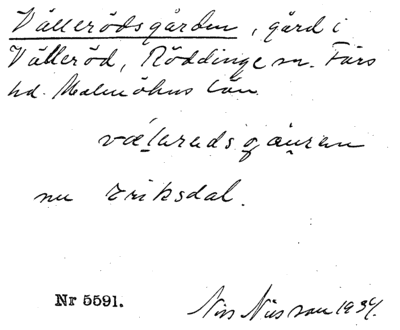 Vällerödsgården, gård i
Välleröd, Röddinge sn. Färs
hd. Malmöhus län.
nu Eriksdal.
Nr 5591.
Nils Nilsson 1934.